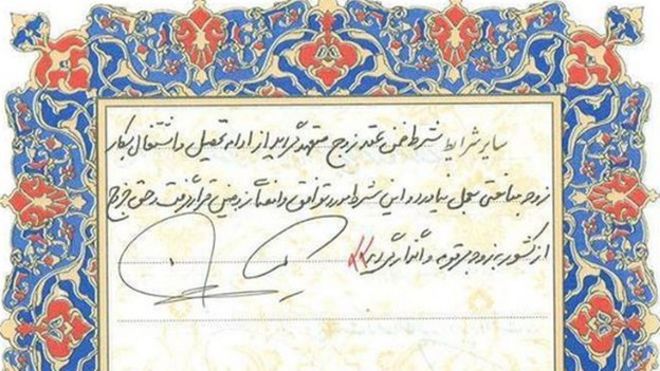 سایر شرایط شرط ضمن عقد زوج متعهد گردید از ادامه تحصیل و اشتغال بکار
زوجه ممانعتی بعمل نیاورد و این شرط مورد توافق و امضاء زوجین قرار گرفت و حق خروج
از کشور به زوجه و واگذار گردید